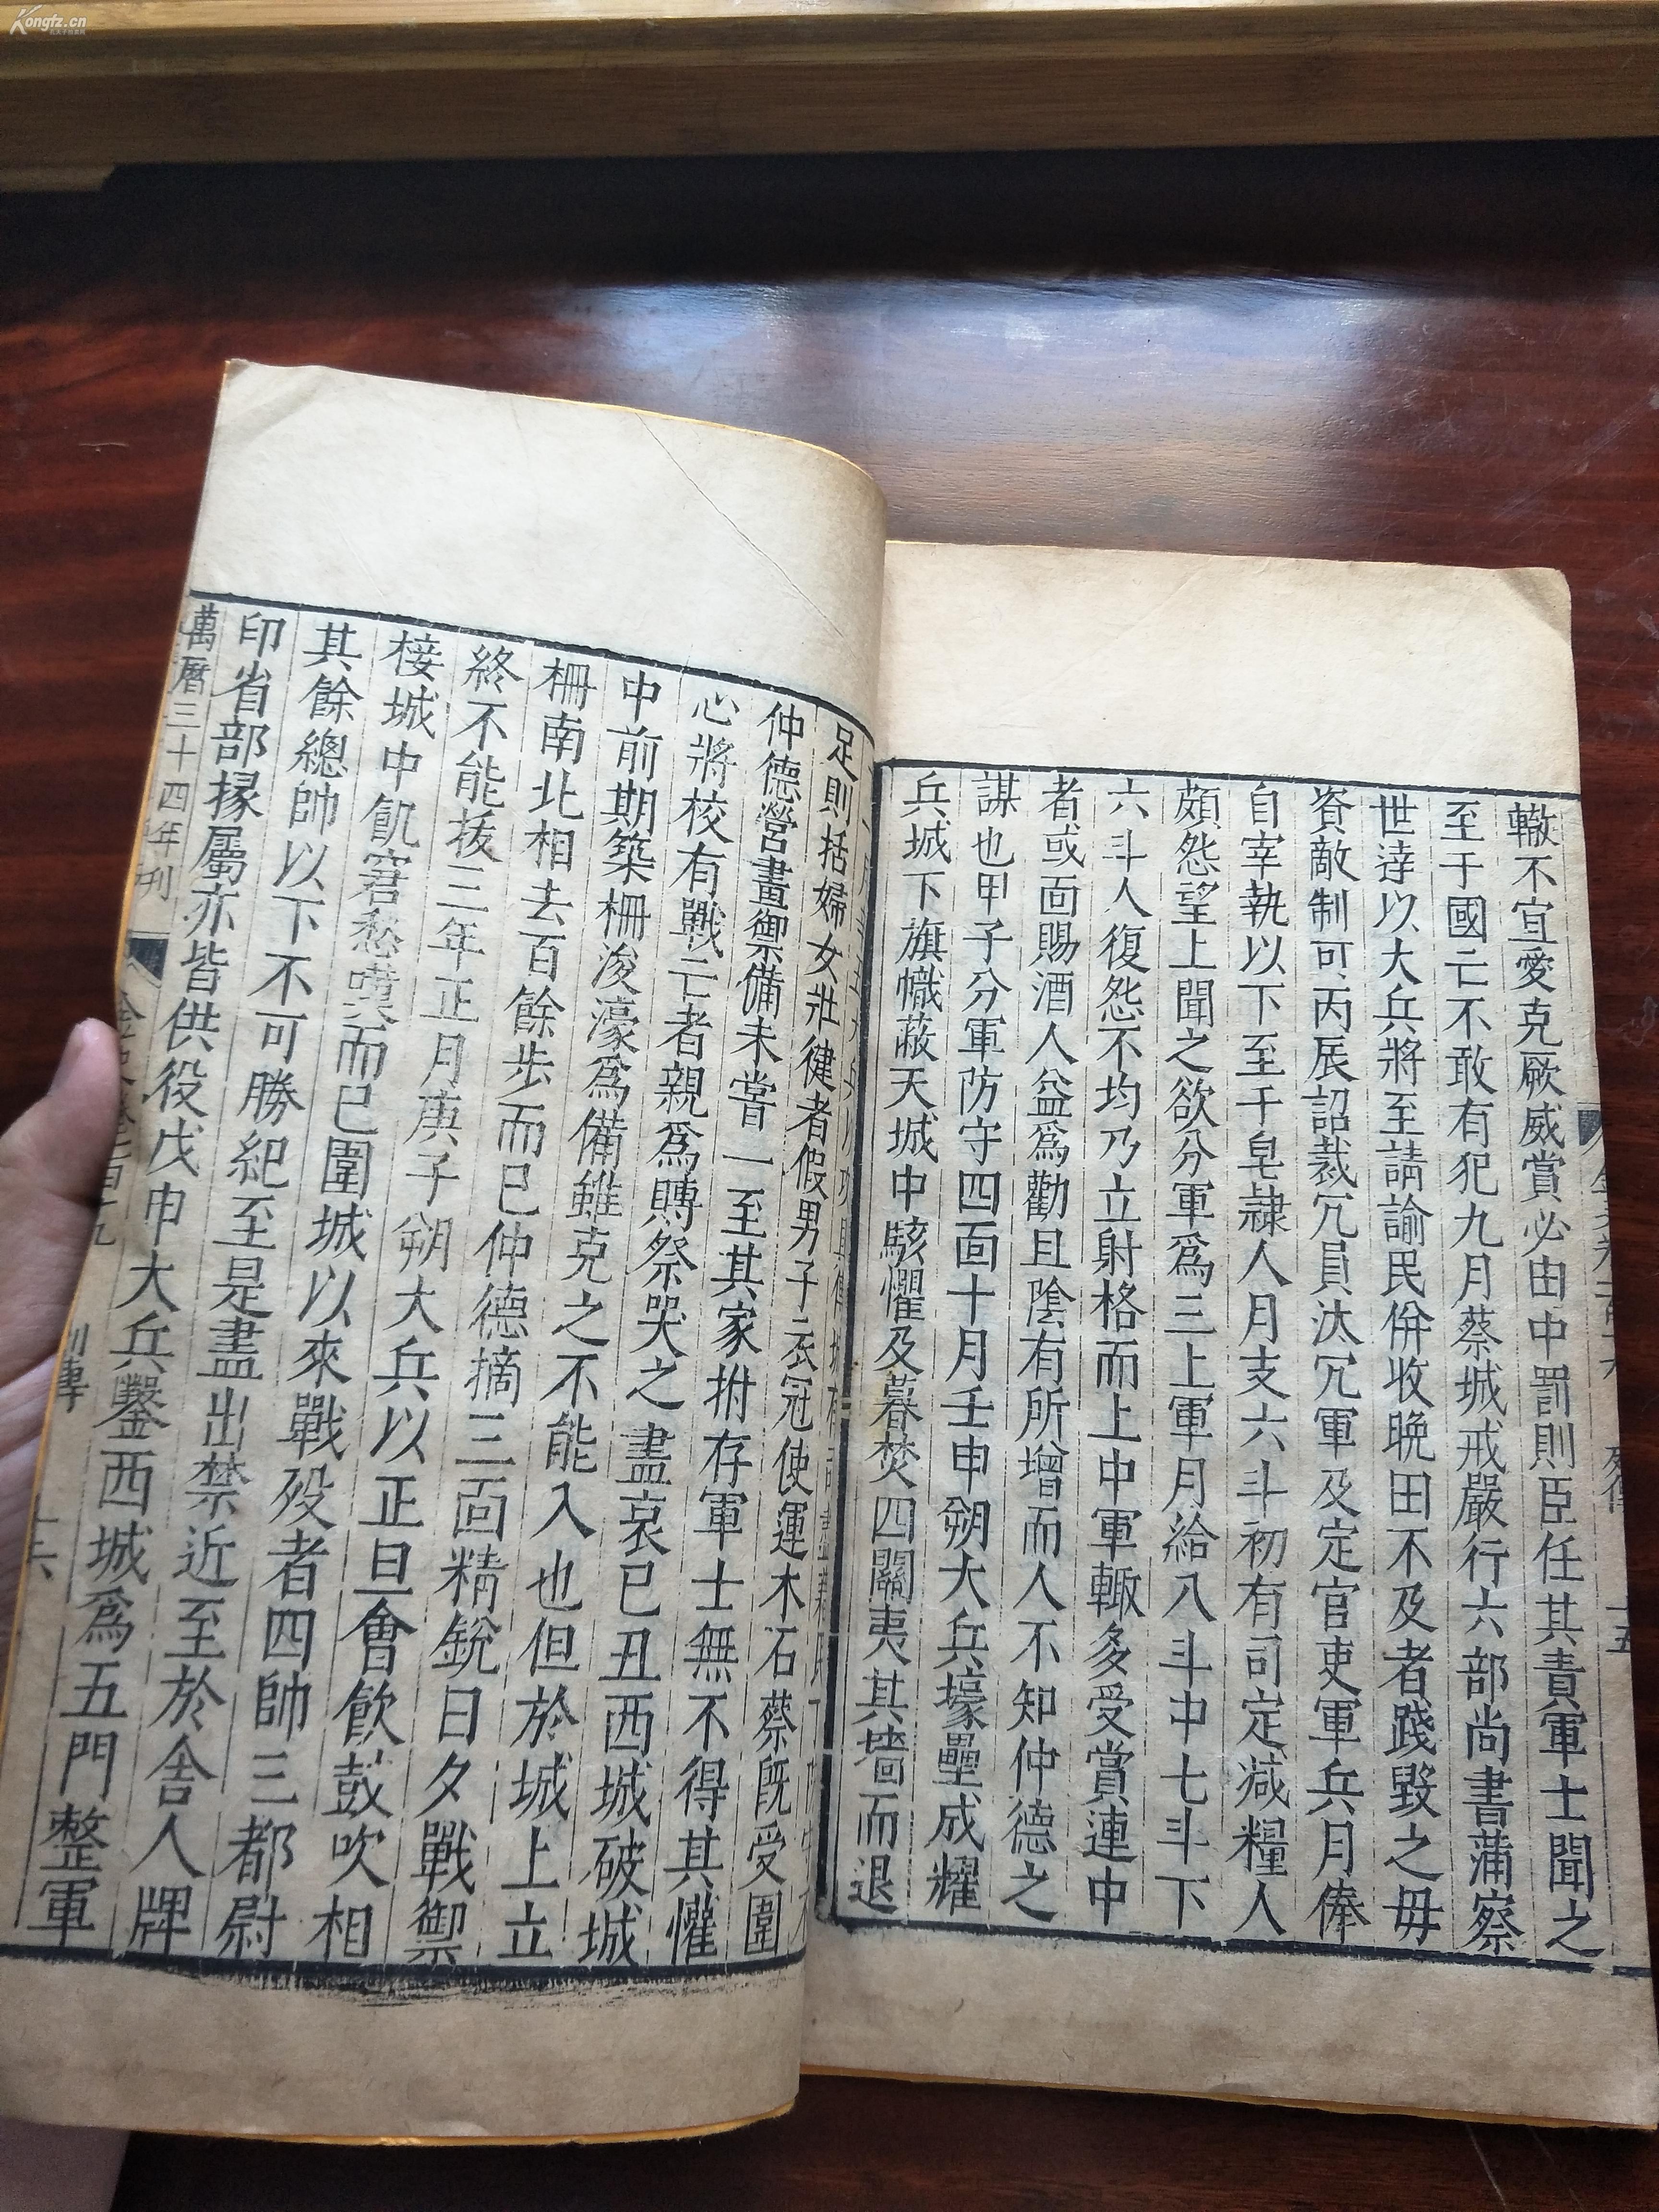 Kongfz.cn
轍不宜愛克厥威賞必由中罰則臣任其責軍士聞之
至于國亡不敢有犯九月蔡城戒嚴行六部尚書蒲察
世達以大兵將至請諭民併收晩田不及者踐毀之毋
資敵制可丙辰詔裁冗員汰冗軍及定官吏軍兵月俸
自宰執以下至于皂隷人月支六斗初有司定減糧人
頗怨望上聞之欲分軍爲三上軍月給八斗中七斗下
六斗人復怨不均乃立射格而上中軍輙多受賞連中
者或面賜酒人益爲勸且隂有所增而人不知仲德之
謀也甲子分軍防守四面十月壬申朔大兵壕壘成耀
兵城下旗幟蔽天城中駭懼及暮焚四關夷其墻而退
足則括婦女壯健者假男子衣冠使運木石蔡旣受圍
仲德營畫禦備未嘗一至其家拊存軍士無不得其懽
心將校有戰亡者親爲賻祭哭之盡哀已丑西城破城
中前期築柵浚濠爲備雖克之不能入也但於城上立
柵南北相去百餘步而已仲德摘三面精銳日夕戰禦
終不能抜三年正月庚子朔大兵以正旦會飲鼓吹相
接城中飢窘愁嘆而已圍城以來戰歿者四帥三都尉
其餘總帥以下不可勝紀至是盡出禁近至於舍人牌
印省部掾屬亦皆供役戊申大兵鑿西城爲五門整軍
萬曆三十四年刊
金史卷一百十九
列傳
十六